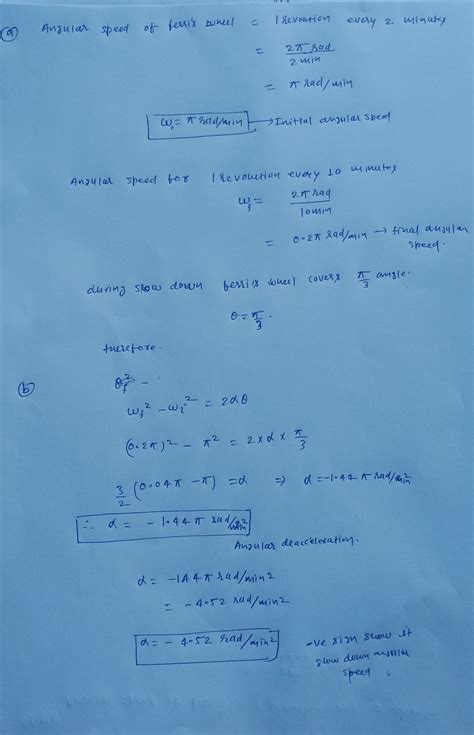 (a) Angular speed of ferrix wheel = 1 revoation every 2 minutes
= 2π rad / 2 min
= π rad/min
ωi = π rad/min → Initial angular speed
Angular speed for 1 revolution every 10 minutes
ωf = 2π rad / 10 min
= 0.2π rad/min → final angular speed.
during slow down ferrix wheel covers π/3 angle.
θ = π/3.
therefore.
(b)
ωf² - ωi² = 2αθ
(0.2π)² - π² = 2 × α × π/3
3/2 (0.04π - π) = α ⇒ α = -1.44 π rad/min²
∴ α = - 1.44 π rad/min²
Angular deacceleration.
α = -1.44 π rad/min2
= -4.52 rad/min2
α = - 4.52 rad/min2
-ve sign show it
slow down angular
speed.